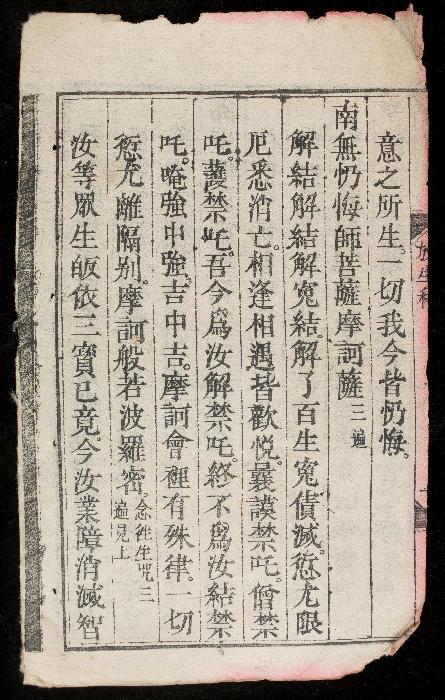 意之所生。一切我今皆忏悔。
南無忏悔師菩薩摩訶薩三遍
解結解結解冤結解了百生冤債滅。愆尤限
厄悉消亡。相逢相遇皆歡悦。曩謨禁吒。僧禁
吒。護禁吒。吾今爲汝解禁吒。終不爲汝結禁
吒。唵強中強。吉中吉。摩訶會裡有殊律。一切
愆尤離隔别。摩訶般若波羅密。念徃生咒三遍見上
汝等眾生皈依三寳已竟。今汝業障消滅智
放生科